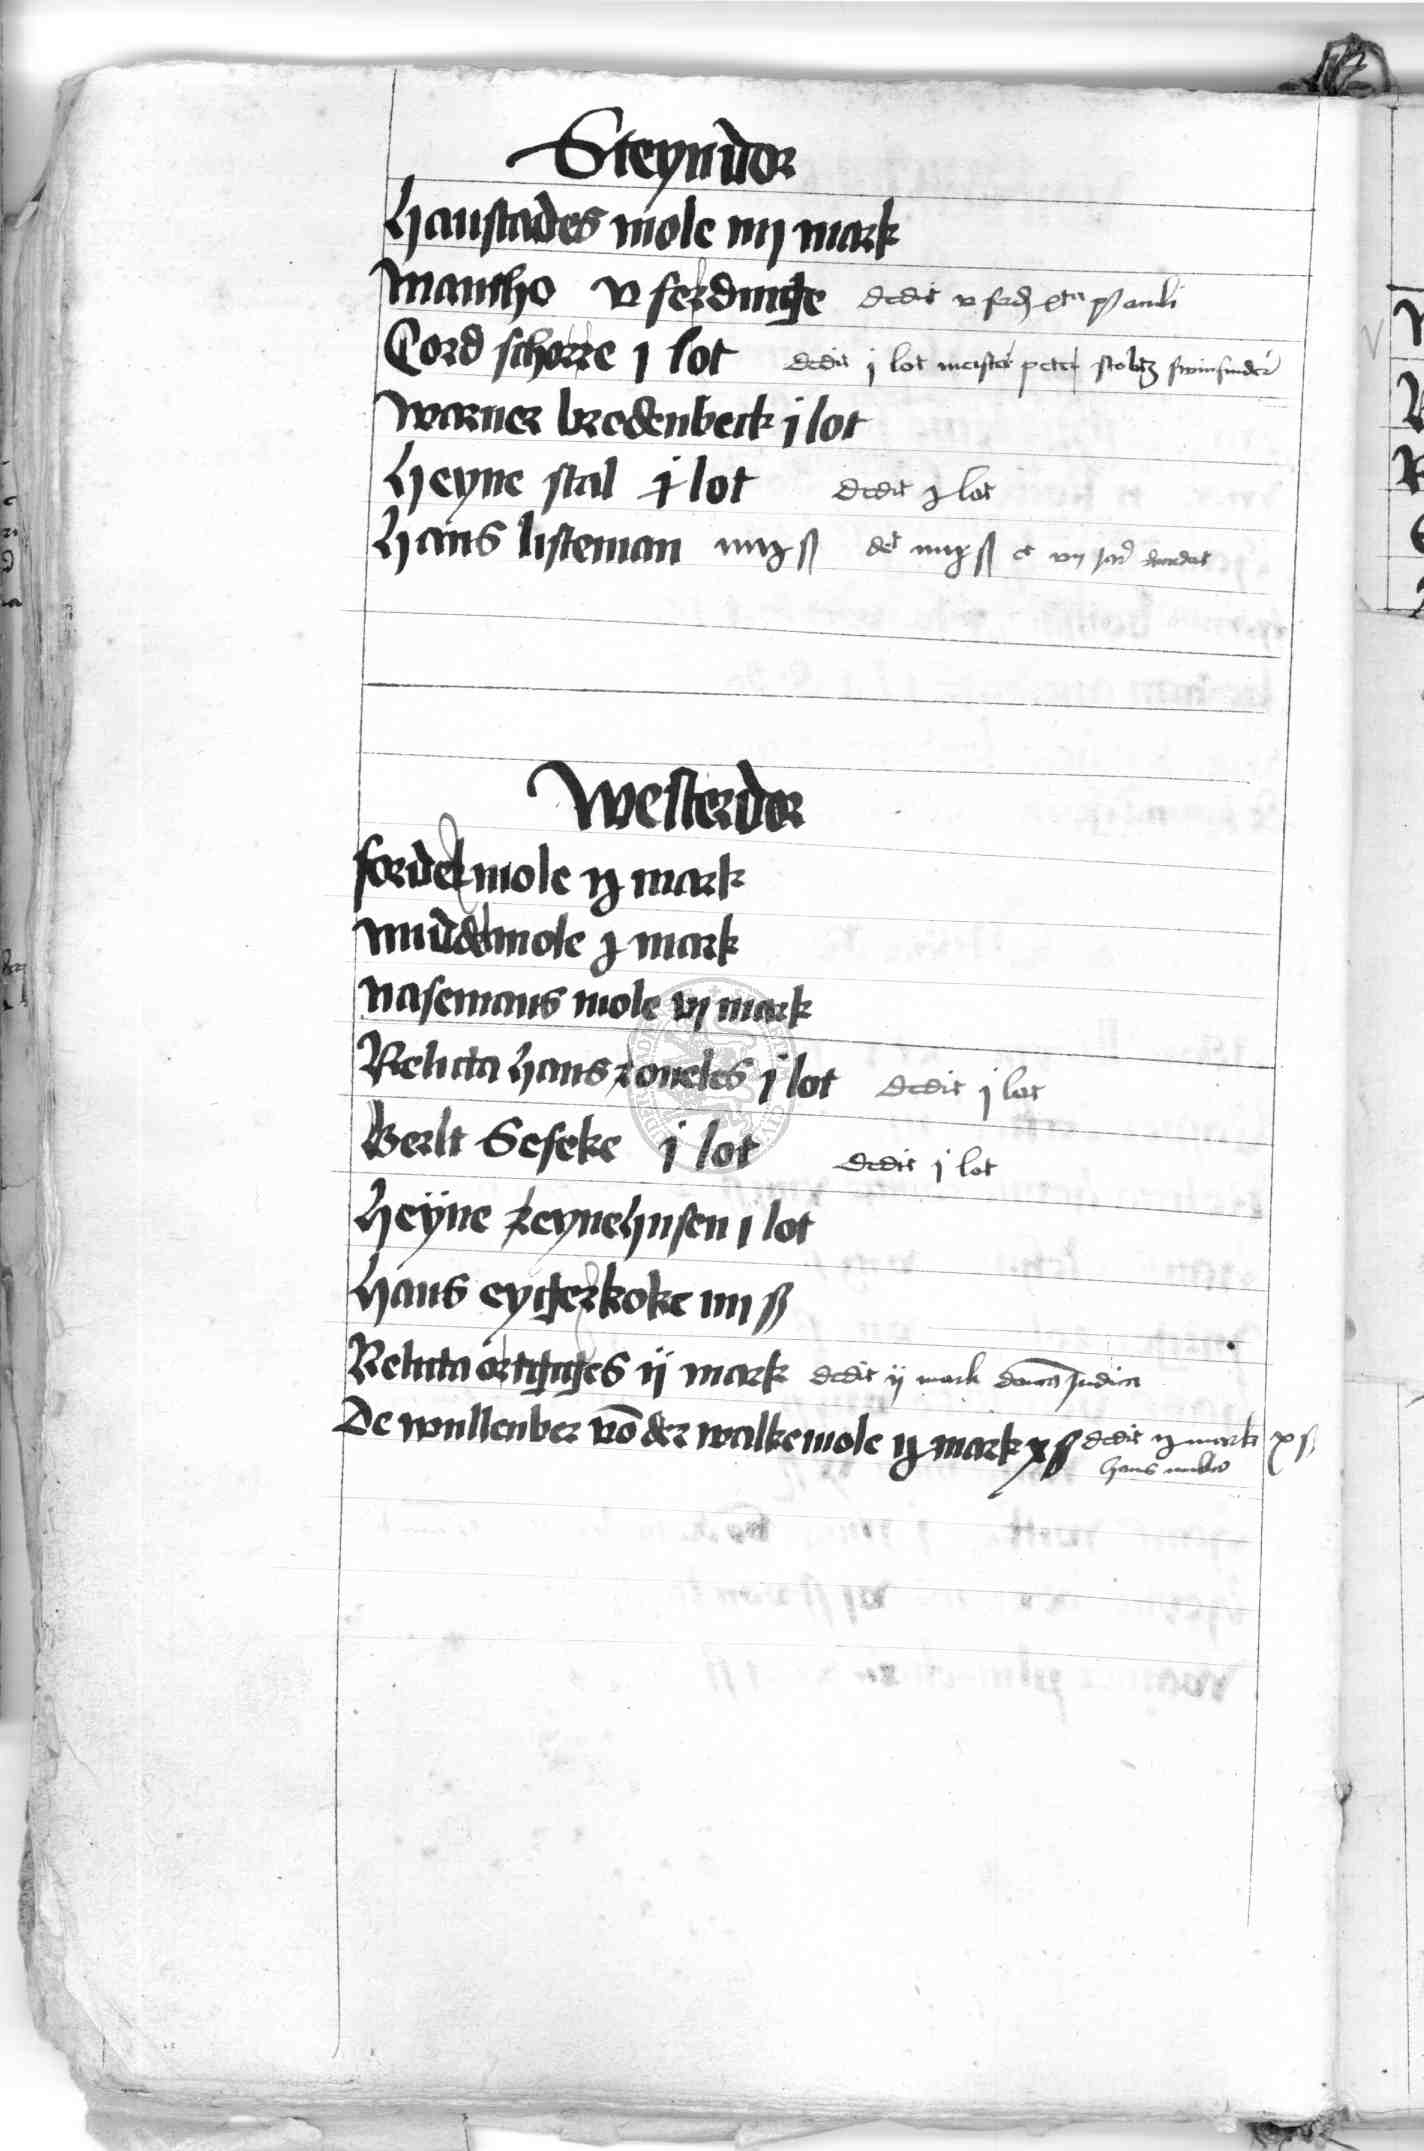 Steyndor
Hanstades mole iiij mark
Mantho v ferdinge dedit v ferd
Cord schorre j lot dedit j lot meister peter stoltz
Warner bredenbeck j lot
Heyne stal j lot dedit j lot
Hans listeman ß det ß et vij
Westerdor
fordermole ij mark
middelmole j mark
nasemans mole vj mark
Relicta hans roueles j lot dedit j lot
Berlt Seseke j lot dedit j lot
Heÿne reynehusen j lot
Hans eygerkoke iiij ß
Relicta ortgyges ij mark dedit ij mark dominica Judica
De wullenber vō der walkemole ij mark x ß dedit ij mark x ß
hans